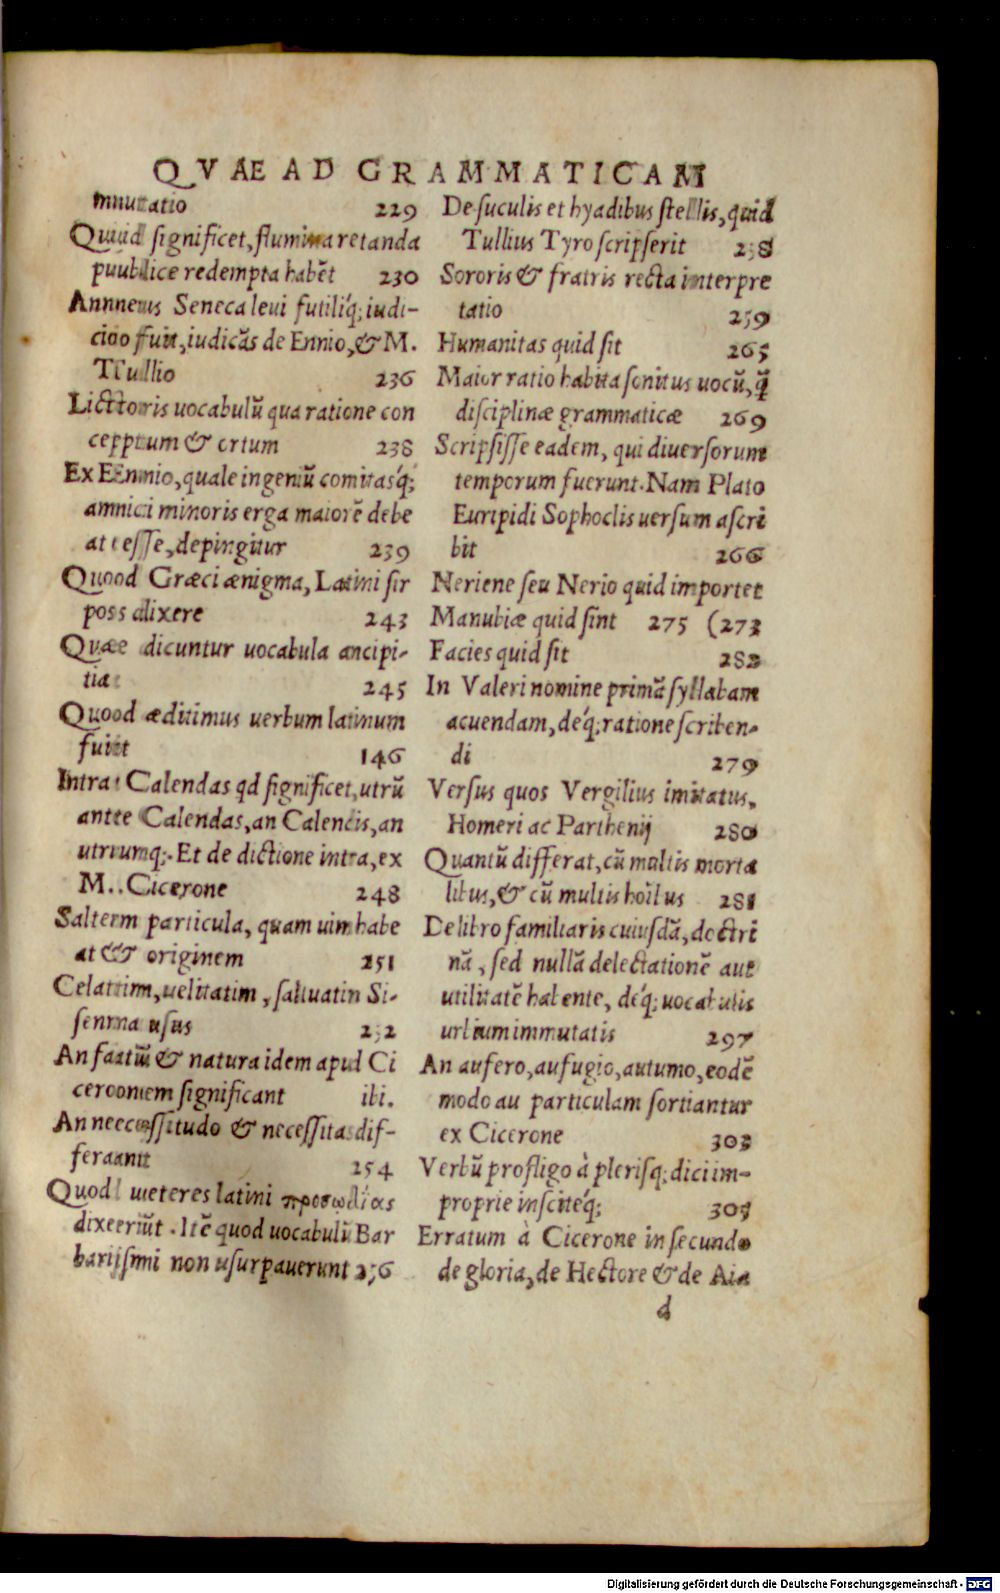 QVAE AD GRAMMATICAM
mutatio 229
Quid significet, flumina retanda
publice redempta habēt 230
Annæus Seneca leui futiliq́; iudi-
cio fuit, iudicās de Ennio, & M.
Tullio 236
Lictoris uocabulū qua ratione con
ceptum & ortum 238
Ex Ennio, quale ingeniū comitasq́;
amici minoris erga maiorē debe
at esse, depingitur 239
Quod Græci ænigma, Latini sir
pos dixere 243
Quæ dicuntur uocabula ancipi-
tia 245
Quod æditimus uerbum latinum
fuit 146
Intra Calendas qd significet, utrū
ante Calendas, an Calendis, an
utrumq;. Et de dictione intra, ex
M. Cicerone 248
Saltem particula, quam uim habe
at & originem 251
Celatim, uelitatim, saltuatin Si-
senna usus 252
An fatū & natura idem apud Ci
ceronem significant ibi.
An necessitudo & necessitas dif-
ferant 254
Quod ueteres latini προσῳδίας
dixerūt. Itē quod uocabulū Bar
barismi non usurpauerunt 256
De suculis et hyadibus stellis, quid
Tullius Tyro scripserit 258
Sororis & fratris recta interpre
tatio 259
Humanitas quid sit 265
Maior ratio habita sonitus uocū, q̄
disciplinæ grammaticæ 269
Scripsisse eadem, qui diuersorum
temporum fuerunt. Nam Plato
Euripidi Sophoclis uersum ascri
bit 266
Neriene seu Nerio quid importet
Manubiæ quid sint 275 (273
Facies quid sit 282
In Valeri nomine primā syllabam
acuendam, deq́; ratione scriben-
di 279
Versus quos Vergilius imitatus,
Homeri ac Parthenij 280
Quantū differat, cū multis morta
libus, & cū multis hoībus 281
De libro familiaris cuiusdā, doctri
nā, sed nullā delectationē aut
utilitatē habente, deq́; uocabulis
urbium immutatis 297
An aufero, aufugio, autumo, eodē
modo au particulam sortiantur
ex Cicerone 303
Verbū profligo à plerisq; dici im-
proprie insciteq́; 305
Erratum à Cicerone in secundo
de gloria, de Hectore & de Aia
d
Digitalisierung gefördert durch die Deutsche Forschungsgemeinschaft - DFG